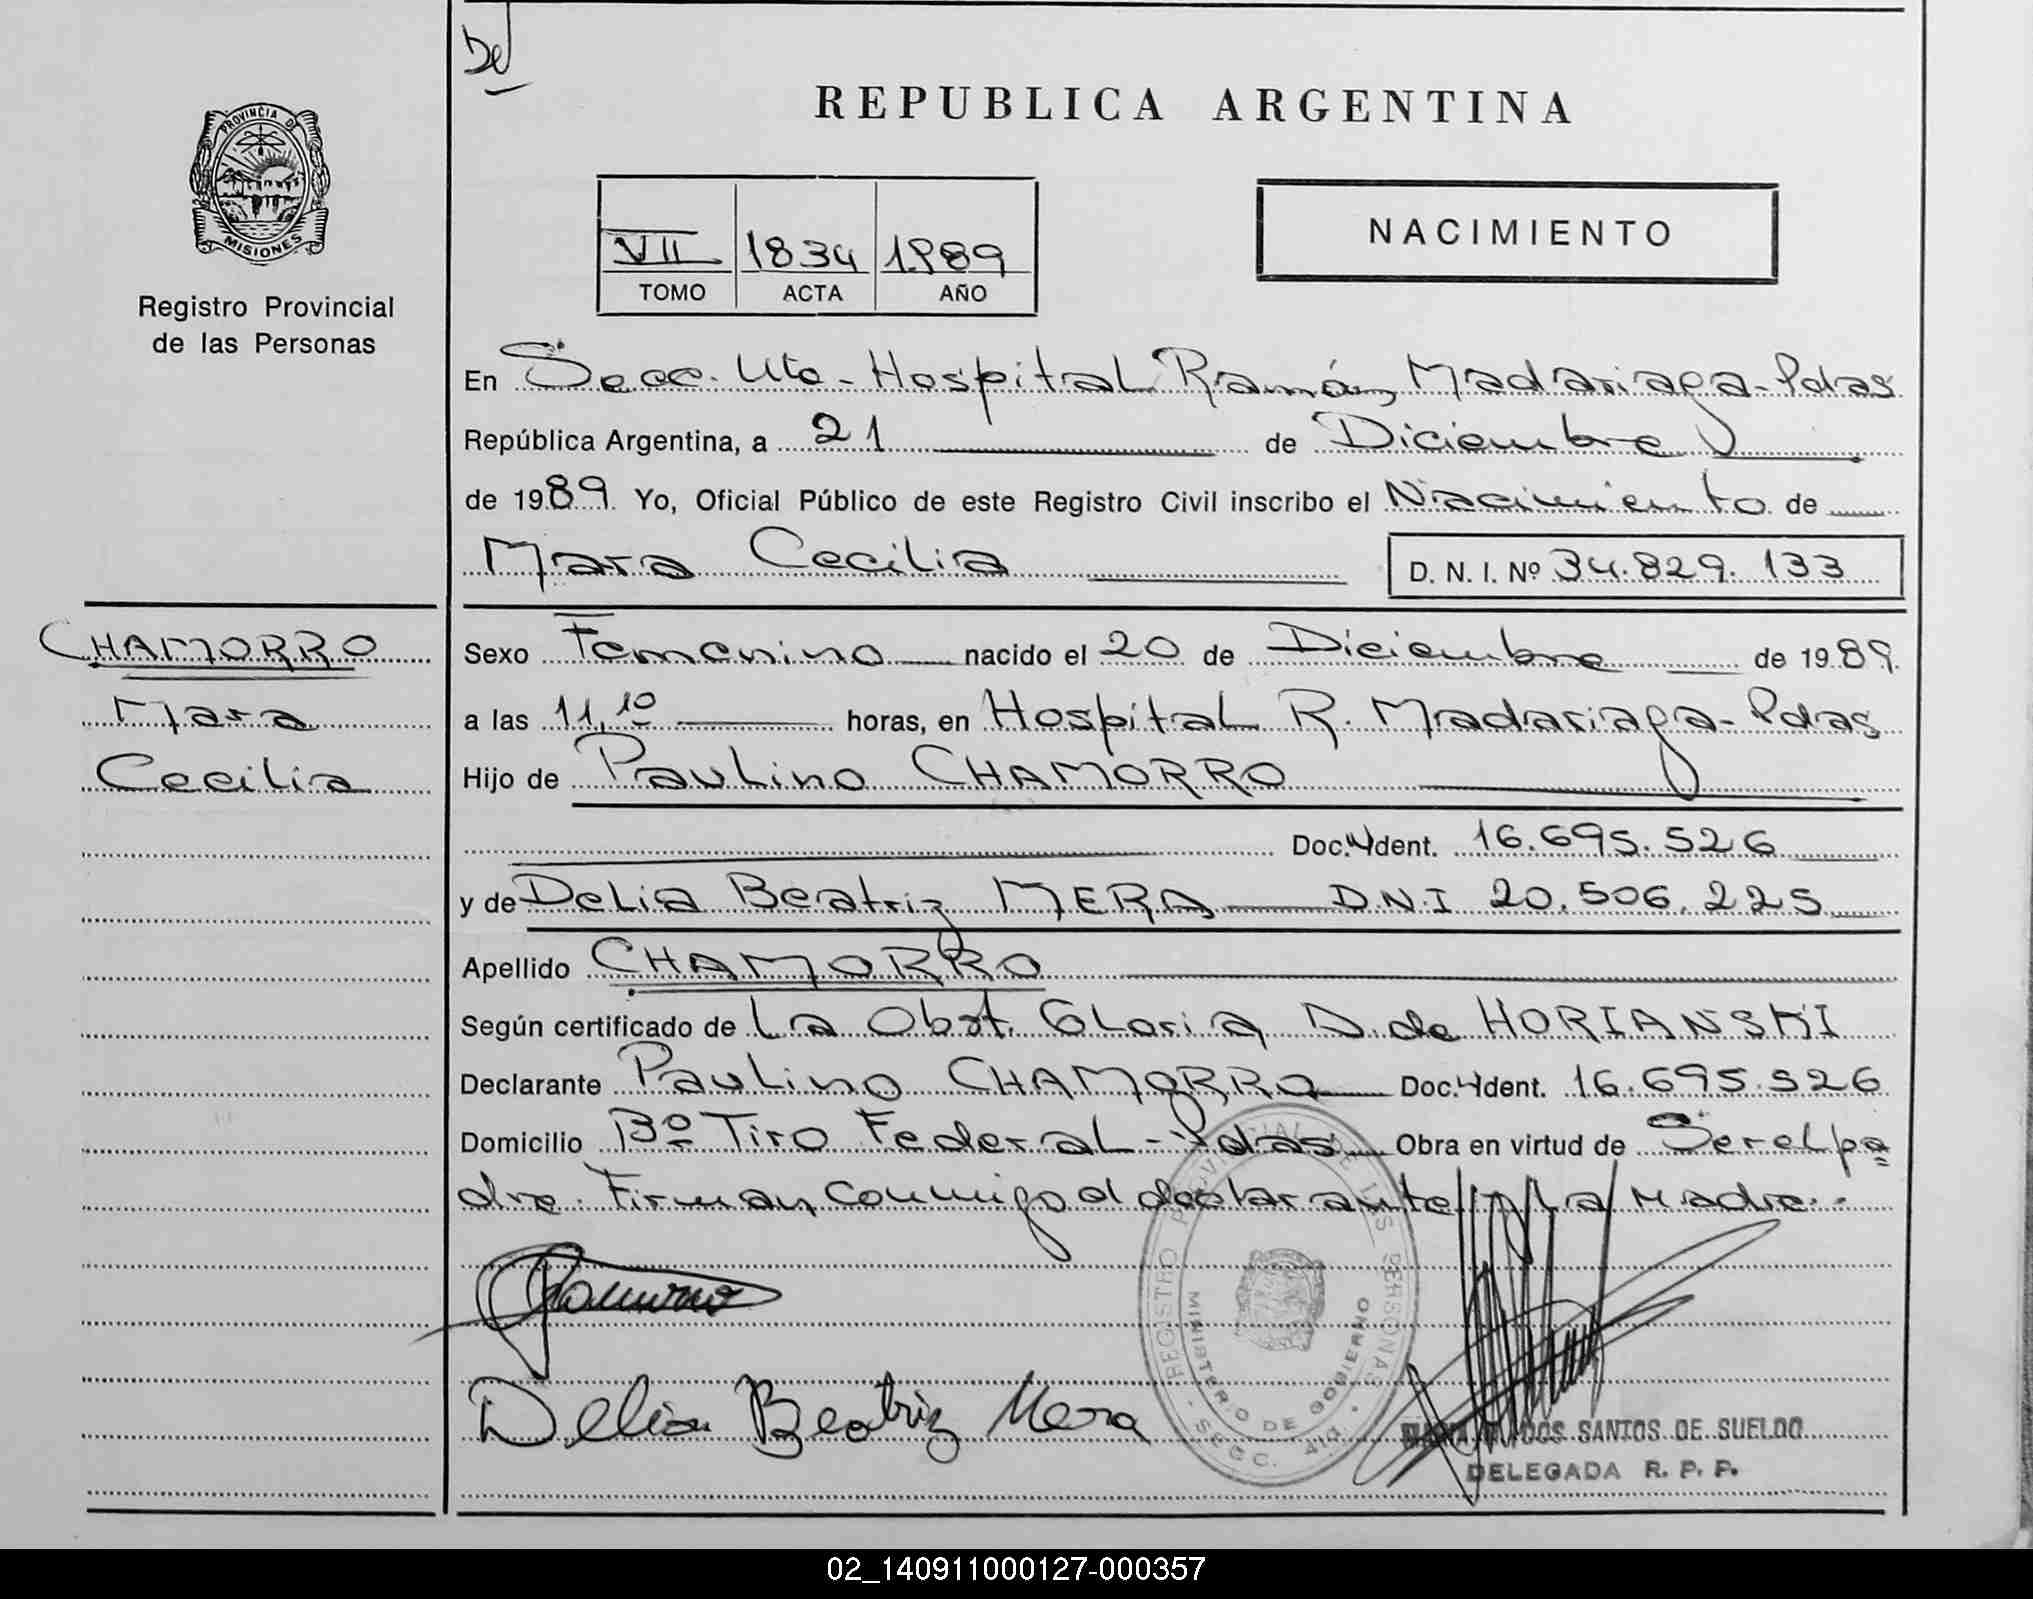 REPUBLICA ARGENTINA
PROVINCIA DE
MISIONES
Registro Provincial
de las Personas
VII 1834 1989
TOMO ACTA AÑO
NACIMIENTO
En Secc. 4ta - Hospital Ramón Madariaga - Pdas
República Argentina, a 21 de Diciembre
de 1989. Yo, Oficial Público de este Registro Civil inscribo el Nacimiento de
Mara Cecilia D. N. I. Nº 34.829.133
CHAMORRO
Mara
Cecilia
Sexo Femenino nacido el 20 de Diciembre de 1989.
a las 11,10 horas, en Hospital R. Madariaga - Pdas
Hijo de Paulino CHAMORRO
Doc. Ident. 16.695.526
y de Delia Beatriz MERA D.N.I 20.506.225
Apellido CHAMORRO
Según certificado de La Obst. Gloria D. de HORIANSKI
Declarante Paulino CHAMORRO Doc. Ident. 16.695.526
Domicilio Bº Tiro Federal - Pdas Obra en virtud de Ser el pa
dre. Firman conmigo el declarante y la Madre.
Delia Beatriz Mera
REGISTRO PROVINCIAL DE LAS PERSONAS
MINISTERIO DE GOBIERNO
SECC. 4ta
DOS SANTOS DE SUELDO
DELEGADA R. P. P.
02_140911000127-000357